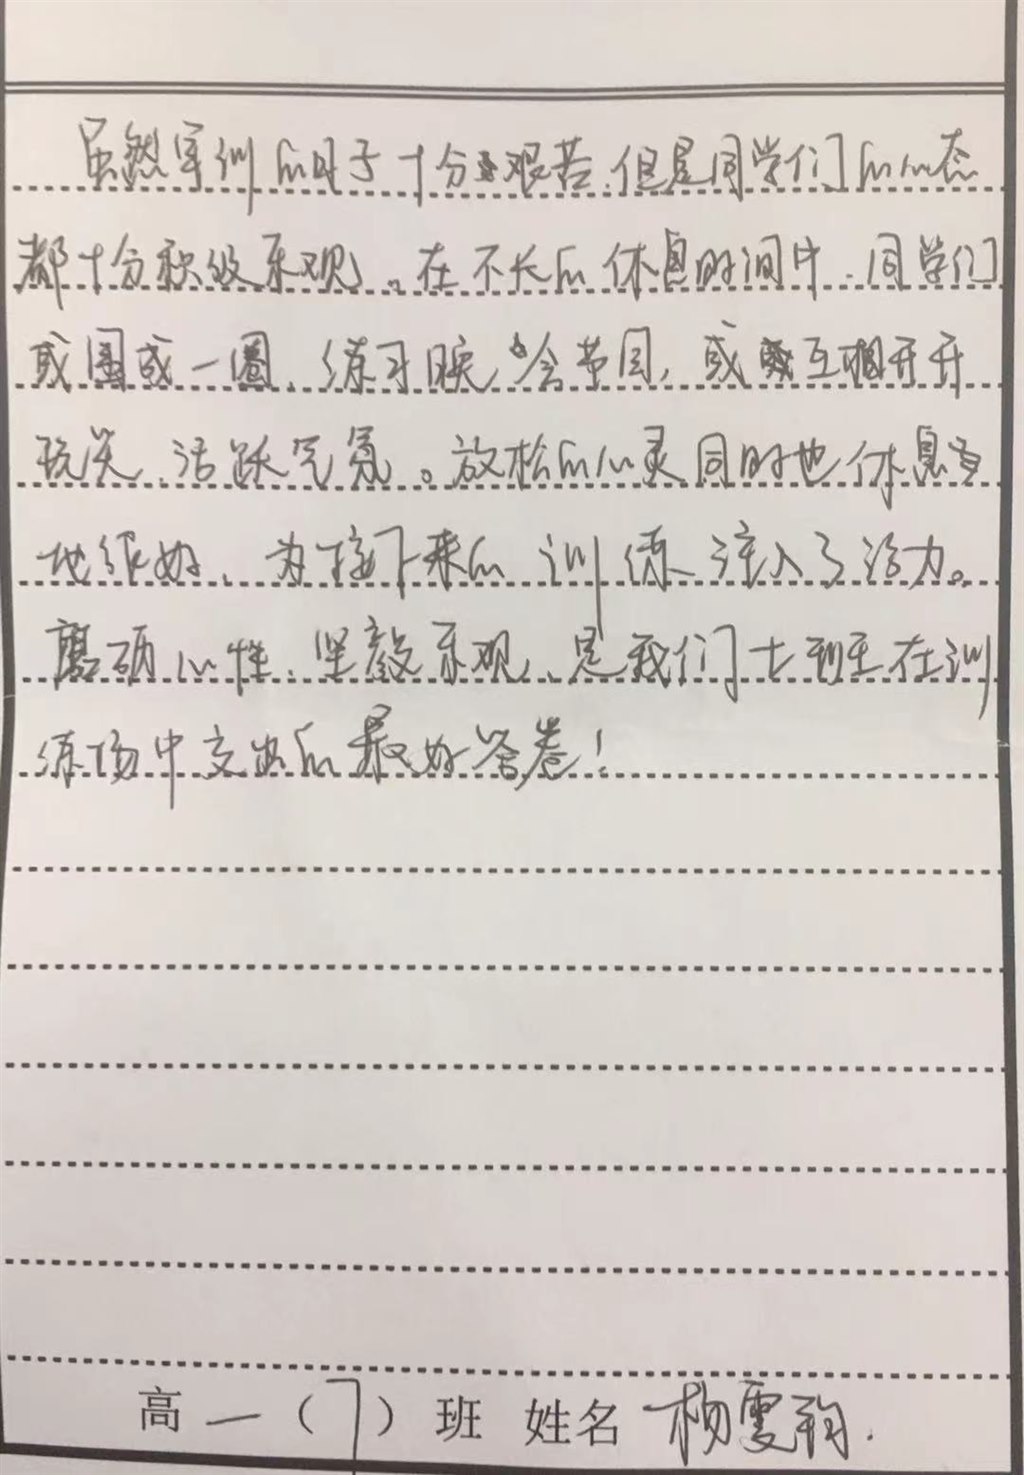 虽然军训的日子十分艰苦,但是同学们的心态
都十分积极乐观。在不长的休息时间中,同学们
或围成一圈,练习晚会节目,或互相开开
玩笑,活跃气氛。放松的心灵同时也休息
地很好,为接下来的训练注入了活力。
磨砺心性,坚毅乐观,是我们七班在训
练场中交出的最好答卷!
高一(7)班 姓名 杨雯